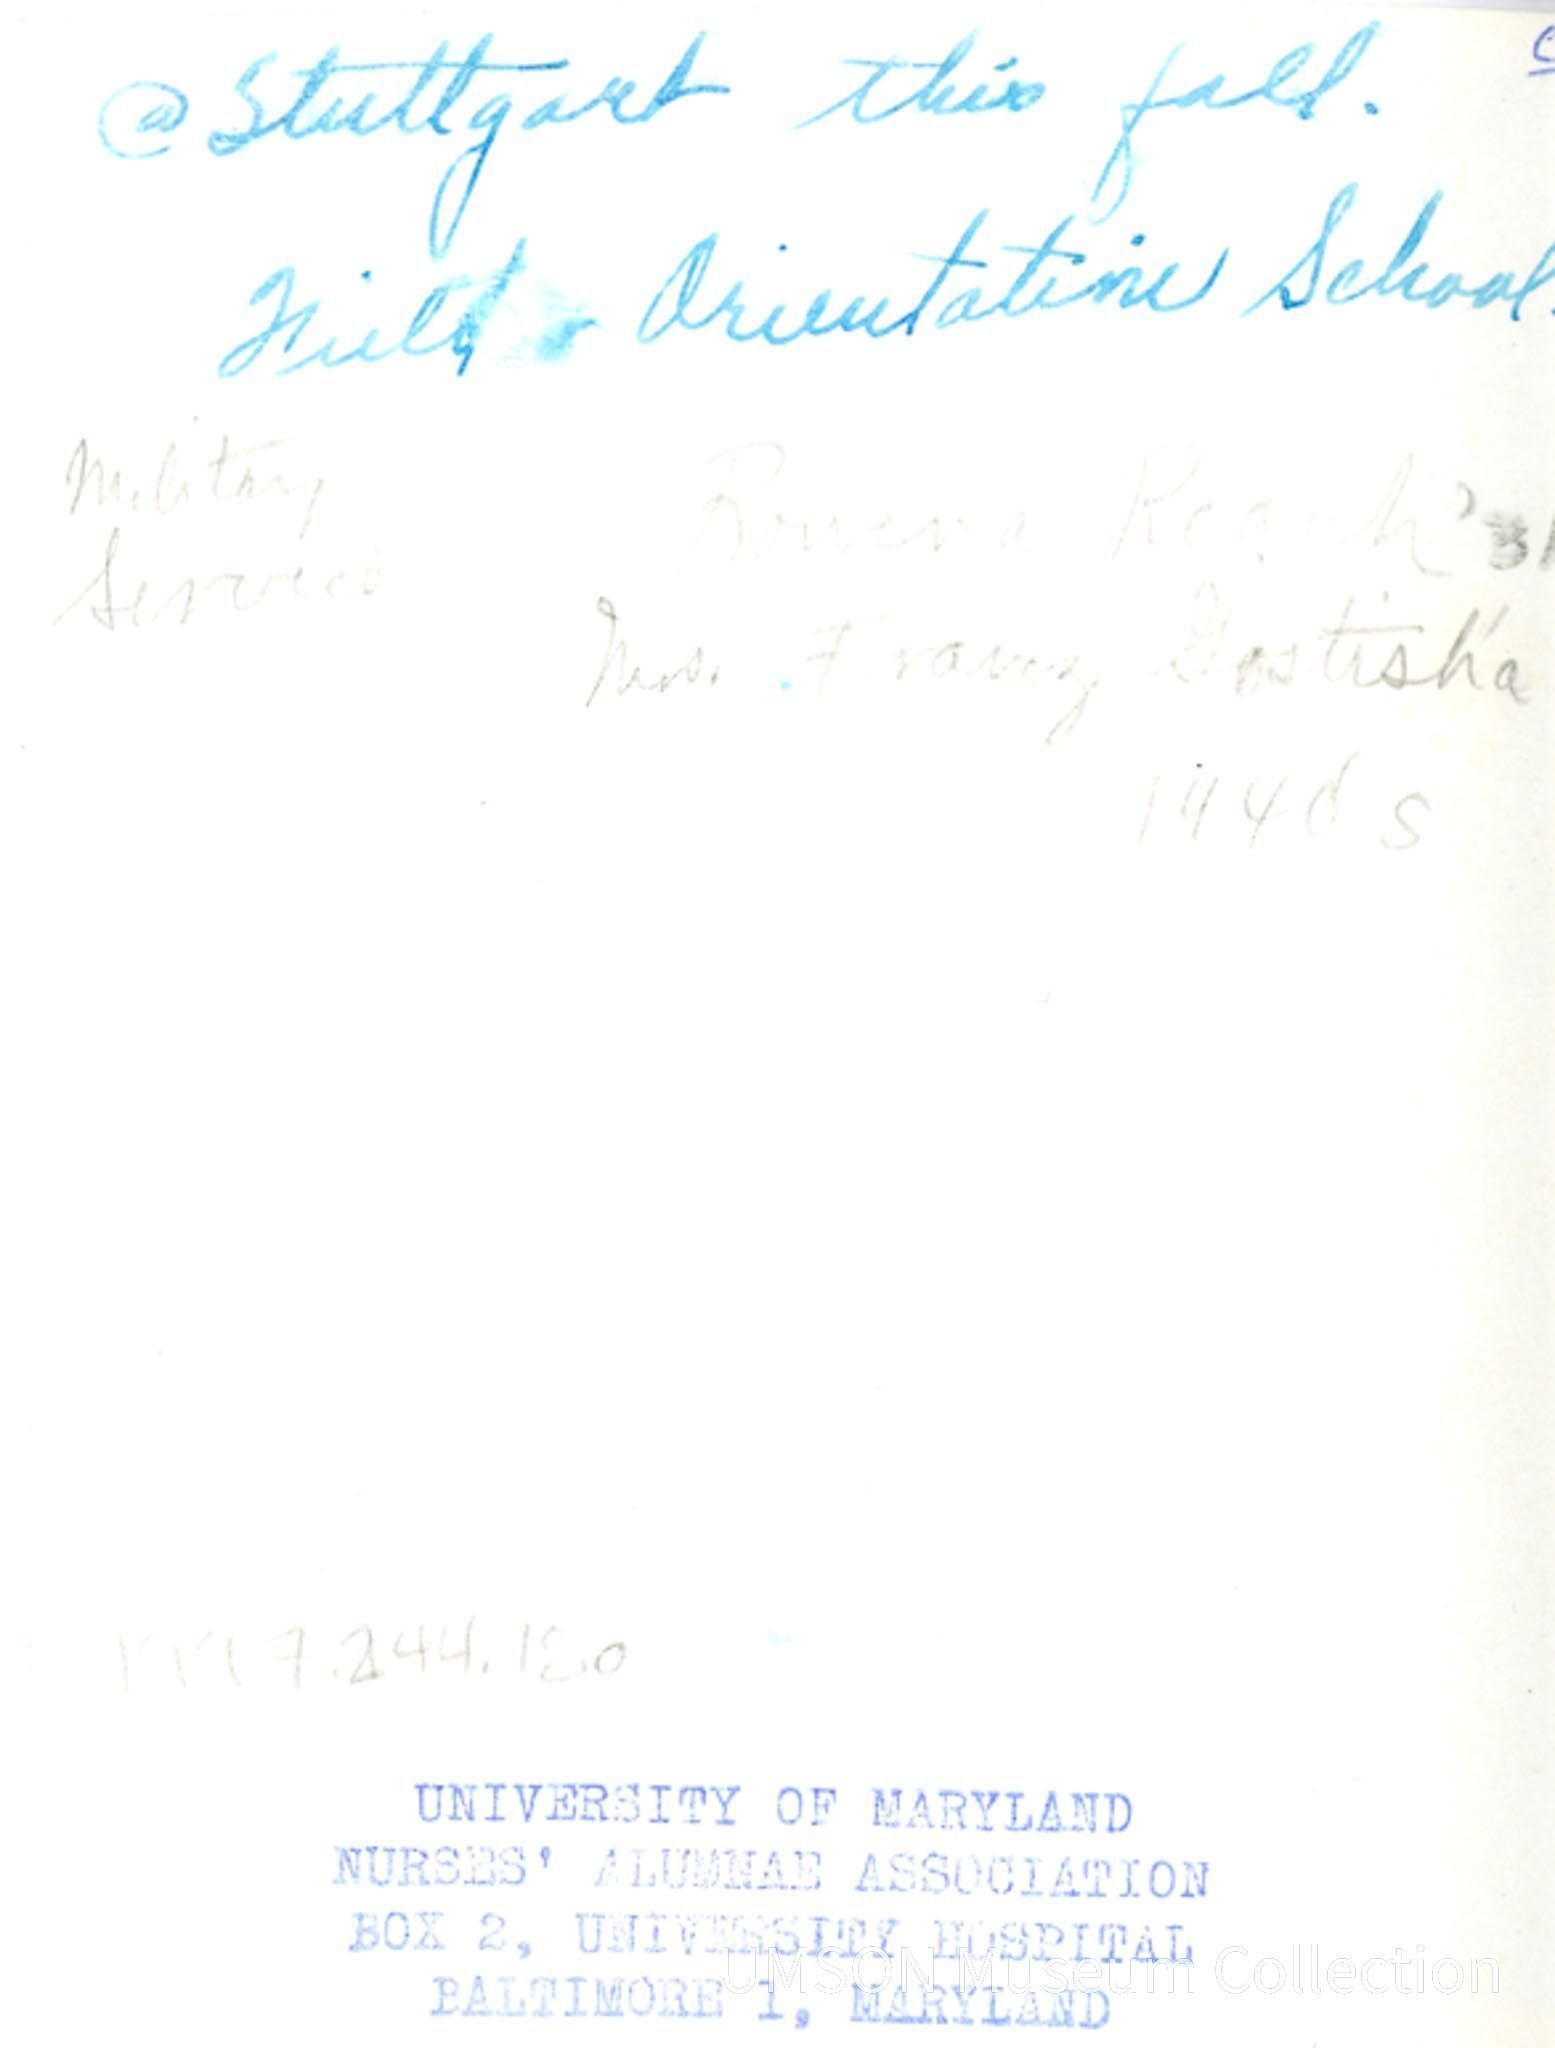 @ Stuttgart this fall.
Field Orientation School.
Military
Service
Rowena Roach '31
Mrs. Franz Gostisha
1940s
1997.244.180
UNIVERSITY OF MARYLAND
NURSES' ALUMNAE ASSOCIATION
BOX 2, UNIVERSITY HOSPITAL
BALTIMORE 1, MARYLAND
UMSON Museum Collection